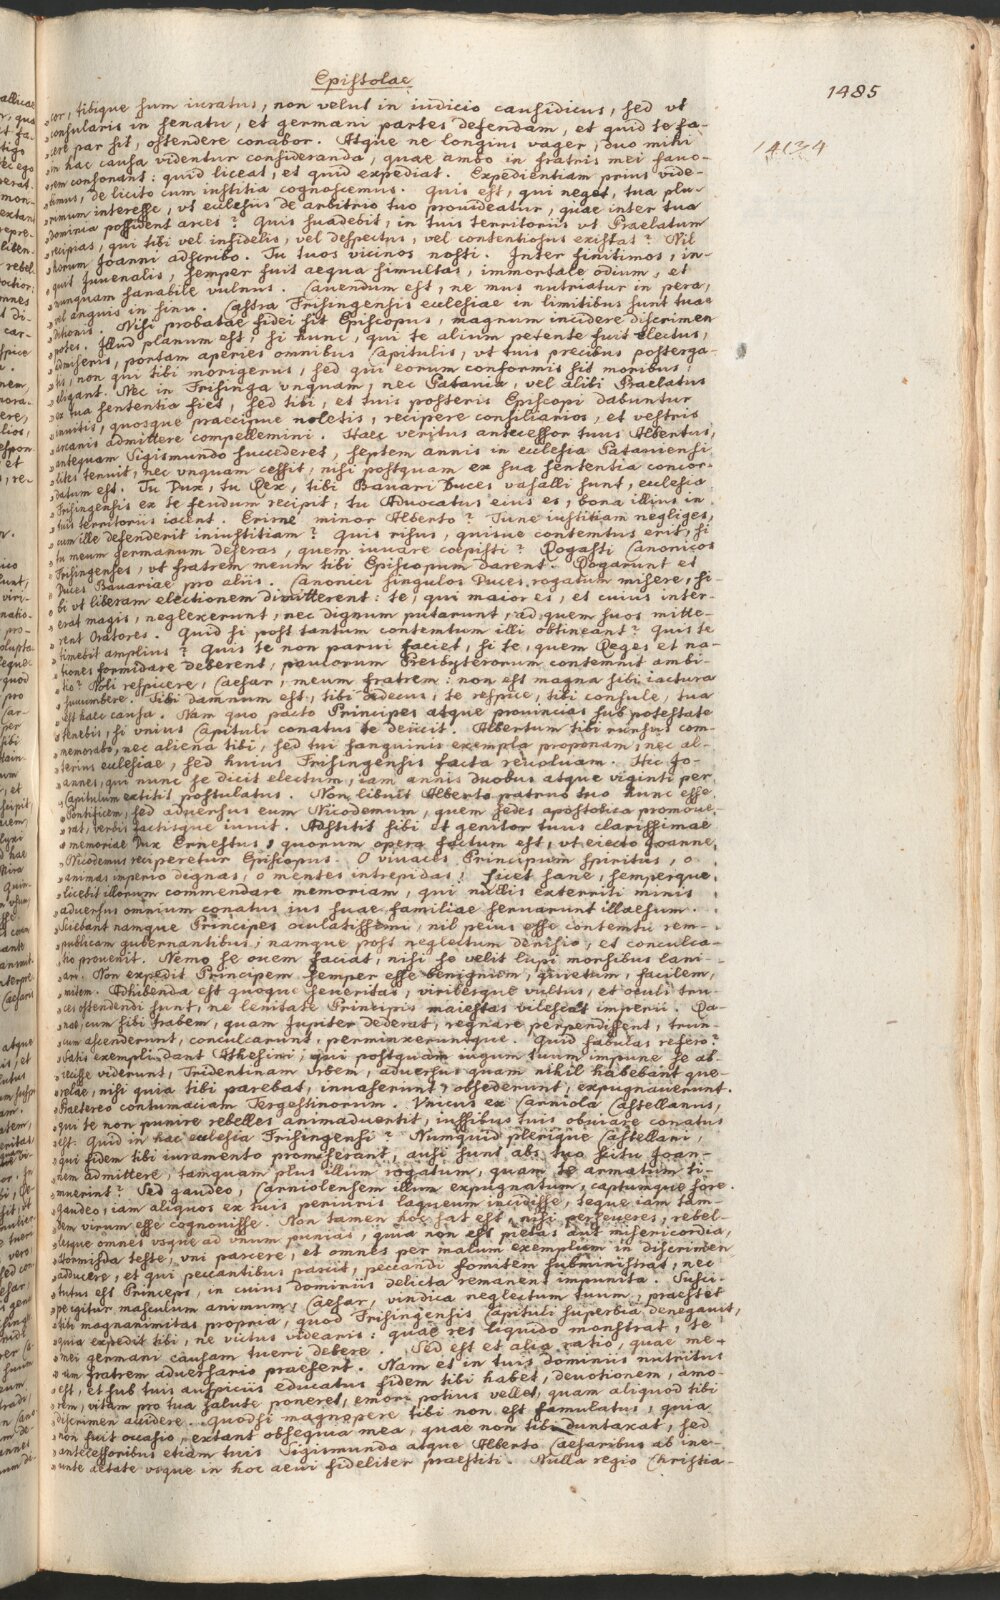 Epistolae
1485
14134
cor, tibique sum iuratus, non velut in iudicio causidicus, sed vt
consularis in senatu, et germani partes defendam, et quid te fa-
cere par sit, ostendere conabor. Atque ne longius vager, duo mihi
in hac causa videntur consideranda, quae ambo in fratris mei fauo-
rem consonant: quid liceat, et quid expediat. Expedientiam prius vide-
bimus, de licito cum iustitia cognoscemus. Quis est, qui neget, tua plu-
rimum interesse, vt ecclesiis de arbitrio tuo prouideatur, quae inter tua
dominia possident arces? Quis suadebit, in tuis territoriis vt Praelatum
recipias, qui tibi vel infidelis, vel despectus, vel contentiosus existat? Nil
horum Joanni adscribo. Tu tuos vicinos nosti. Inter finitimos, in-
quit Juuenalis, semper fuit aequa simultas, immortale odium, et
nunquam sanabile vulnus. Cauendum est, ne mus nutriatur in pera,
vel anguis in sinu. Castra Frisingensis ecclesiae in limitibus sunt tuae
ditionis. Nisi probatae fidei sit Episcopus, magnum incidere discrimen
potes. Illud planum est, si hunc, qui te alium petente fuit electus,
admiseris, portam aperies omnibus Capitulis, vt tuis precibus posterga-
tis, non qui tibi morigerus, sed qui eorum conformis sit moribus,
eligant. Nec in Frisinga vnquam, nec Patauia, vel alibi Praelatus
ex tua sententia fiet, sed tibi, et tuis posteris Episcopi dabuntur
inuitis, quosque praecipue noletis, recipere consiliarios, et vestris
arcanis admittere compellemini. Haec veritus antecessor tuus Albertus,
antequam Sigismundo succederet, septem annis in ecclesia Patauiensi
lites tenuit, nec vnquam cessit, nisi postquam ex sua sententia concor-
datum est. Tu Dux, tu Rex, tibi Bauari Duces vasalli sunt, ecclesia
Frisingensis ex te feudum recipit, tu Aduocatus eius es, bona illius in
tuis territoriis iacent. Erisne minor Alberto? Tune iustitiam negliges,
cum ille defenderit iniustitiam? Quis risus, quisue contemtus erit, si
tu meum germanum deseras, quem iuuare coepisti? Rogasti Canonicos
Frisingenses, vt fratrem meum tibi Episcopum darent. Rogarunt et
Duces Bauariae pro aliis. Canonici singulos Duces rogatum misere, si-
bi vt liberam electionem dimitterent: te, qui maior es, et cuius inter-
erat magis, neglexerunt, nec dignum putarunt, ad quem suos mitte-
rent Oratores. Quid si post tantum contemtum illi obtineant? Quis te
timebit amplius? Quis te non parui faciet, si te, quem Reges et na-
tiones formidare deberent, paulorum Presbyterorum contemnit ambi-
tio? Noli respicere, Caesar, meum fratrem: non est magna sibi iactura
succumbere. Tibi damnum est, tibi dedecus, te respice, tibi consule, tua
est haec causa. Nam quo pacto Principes atque prouincias sub potestate
tenebis, si vnius Capituli conatus te deiicit. Albertum tibi rursus com-
memorabo, nec aliena tibi, sed tui sanguinis exempla proponam, nec al-
terius ecclesiae, sed huius Frisingensis facta reuoluam. Hic Jo-
annes, qui nunc se dicit electum, iam annis duobus atque viginti per
Capitulum extitit postulatus. Non libuit Alberto patruo tuo hunc esse
Pontificem, sed aduersus eum Nicodemum, quem sedes apostolica promoue-
rat, verbis factisque iuuit. Adstitit sibi et genitor tuus clarissimae
memoriae Dux Ernestus, quorum opera factum est, vt eiecto Joanne,
Nicodemus reciperetur Episcopus. O viuaces Principum spiritus, o
animas imperio dignas, o mentes intrepidas! licet sane, semperque
licebit illorum commendare memoriam, qui nullis exterriti minis
aduersus omnium conatus ius suae familiae seruarunt illaesum.
Sciebant namque Principes oculatissimi, nil peius esse contemtu rem-
publicam gubernantibus; namque post neglectum derisio, et conculca-
tio prouenit. Nemo se ouem faciat, nisi se velit lupi morsibus lani-
ari. Non expedit Principem semper esse benignum, quietum, facilem,
mitem. Adhibenda est quoque seueritas, virilesque vultus, et oculi tru-
ces ostendendi sunt, ne lenitate Principis maiestas vilescat imperii. Ra-
nae, cum sibi trabem, quam Jupiter dederat, regnare perpendissent, trun-
cum ascenderunt, conculcarunt, perminxeruntque. Quid fabulas refero?
Satis exempli dant Athesini, qui postquam iugum tuum impune se ab-
iecisse viderunt, Tridentinam vrbem, aduersus quam nihil habebant que-
relae, nisi quia tibi parebat, inuaserunt, obsederunt, expugnauerunt.
Praetereo contumaciam Tergestinorum. Vnicus ex Carniola Castellanus,
qui te non punire rebelles animaduertit, iussibus tuis obuiare conatus
est. Quid in hac ecclesia Frisingensi? Numquid plerique Castellani,
qui fidem tibi iuramento promiserant, ausi sunt abs tuo scitu Joan-
nem admittere, tamquam plus illum rogatum, quam te armatum ti-
muerint? Sed gaudeo, Carniolensem illum expugnatum, captumque fore.
Gaudeo, iam aliquos ex tuis periuriis laqueum incidisse, teque iam tan-
dem virum esse cognouisse. Non tamen hoc sat est, nisi perseueres, rebel-
lesque omnes vsque ad vnum punias, quia non est pietas aut misericordia,
Hormisda teste, vni parcere, et omnes per malum exemplum in discrimen
adducere, et qui peccantibus parcit, peccandi fomitem subministrat, nec
tutus est Princeps, in cuius dominiis delicta remanent impunita. Susci-
pe igitur masculum animum, Caesar, vindica neglectum tuum, praestet
tibi magnanimitas propria, quod Frisingensis Capituli superbia denegauit,
quia expedit tibi, ne victus videaris: quae res liquido monstrat, te
mei germani causam tueri debere. Sed est et alia ratio, quae me-
um fratrem aduersario praefert. Nam et in tuis dominiis nutritus
est, et sub tuis auspiciis educatus fidem tibi habet, deuotionem, amo-
rem, vitam pro tua salute poneret, emori potius vellet, quam aliquod tibi
discrimen accidere. Quodsi magnopere tibi non est famulatus, quia
non fuit occasio, extant obsequia mea, quae non tibi duntaxat, sed
antecessoribus etiam tuis Sigismundo atque Alberto Caesaribus ab ine-
unte aetate vsque in hoc aeui fideliter praestiti. Nulla regio Christia-